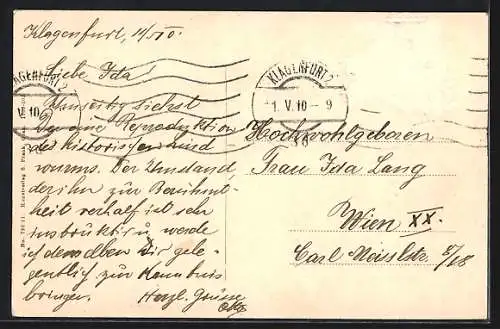 Klagenfurt, 1/5 10.
Liebe Ida
Umseitig siehst
Du eine Reproduktion
des historischen Lind
wurms. Der Umstand,
der ihm zur Berühmt-
heit verhalf ist sehr
instruktiv u. werde
ich denselben Dir gele-
gentlich zur Kenntnis
bringen. Herzl. Grüsse
KLAGENFURT 2
V. 10
KLAGENFURT 2
1. V. 10 - 9
Hochwohlgeboren
Frau Ida Lang
Wien XX.
Carl Meisslstr. 8/18